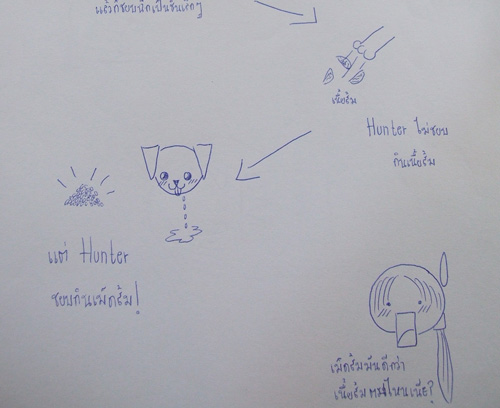 แล้วก็ชอบฉีกเป็นชิ้นเล็กๆ
เนื้อส้ม
Hunter ไม่ชอบ
กินเนื้อส้ม
แต่ Hunter
ชอบกินเม็ดส้ม!
เม็ดส้มมันดีกว่า
เนื้อส้มตรงไหนเนี่ย?